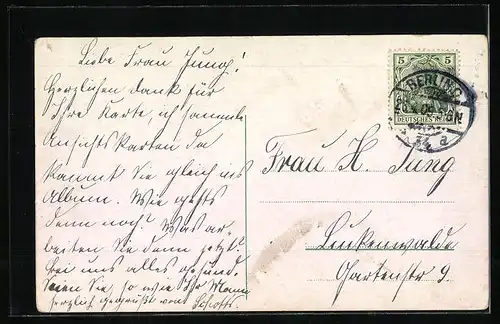 Liebe Frau Jung!
Herzlichen dank für
Ihre Karte, ich sammle
Ansichtskarten da
kommt Sie gleich ins
Album. Wie gehts
denn noch? Was ar-
beiten Sie denn jetzt?
bei uns alles gesund.
Seien Sie, so wie Ihr Mann
herzlich gegrüßt von Schotts.
5 5
DEUTSCHES REICH
BERLIN
Frau H. Jung
Luckenwalde
Gartenstr 9.